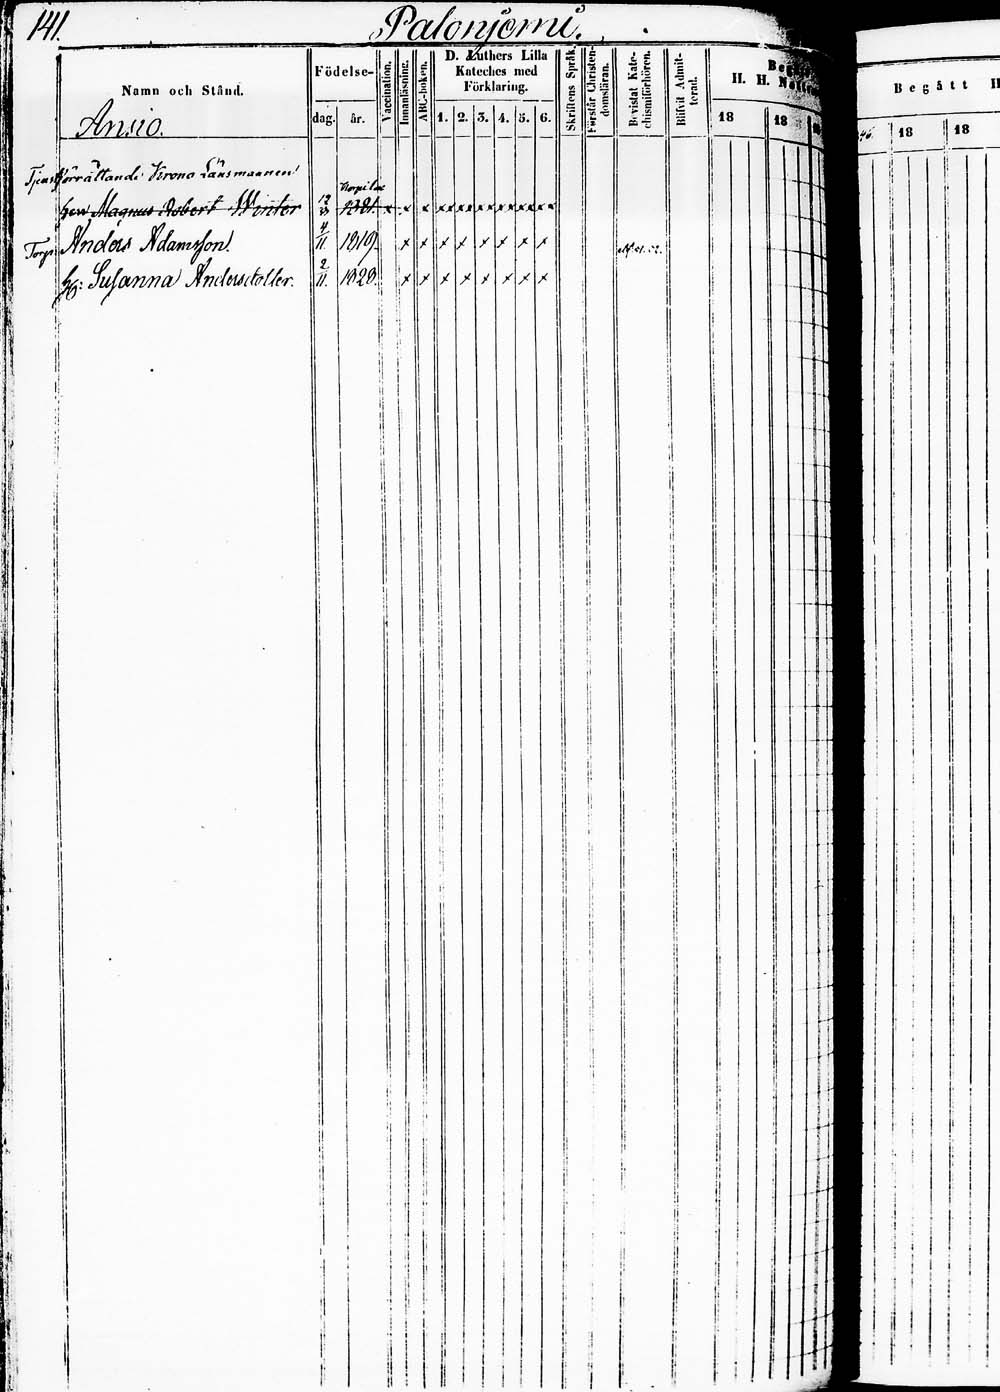 141.
Palonjemi.
Namn och Stånd.
Födelse-
dag. år.
Vaccination.
Innanläsning.
ABC-boken.
D. Luthers Lilla
Kateches med
Förklaring.
1. 2. 3. 4. 5. 6.
Skriftens Språk.
Förstår Christen-
domsläran.
Bevistat Kate-
chismiförhören.
Blifvit Admit-
terad.
H. H.
18 18
Begått H
46. 18 18
Ansio.
Tjenstförrättande Krono Länsmannen
Herr Magnus Robert Winter 12/3 x x x x x x x x x
Torp. Anders Adamsson. 4/11 1819. x x x x x x x x
H: Susanna Andersdotter. 2/11. 1820. x x x x x x x x